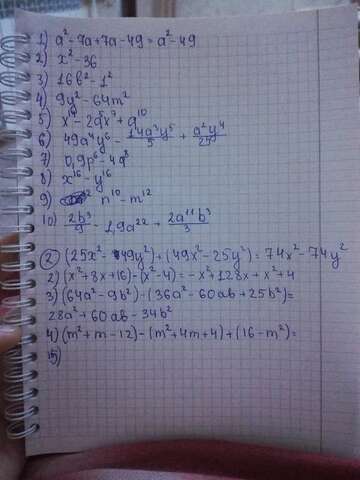 1) a² - 7a + 7a - 49 = a² - 49
2) x² - 36
3) 16b² - 1²
4) 9y² - 64m²
5) x¹⁴ - 2a⁵x⁷ + a¹⁰
6) 49a⁴y⁶ - 14a³y⁵/5 + a²y⁴/25
7) 0,9p⁶ - 4q⁸
8) x¹⁶ - y¹⁶
9) n¹⁰ - m¹²
10) 2b³/9 - 1,9a²² + 2a¹¹b³/3
② (25x² - 49y²) + (49x² - 25y²) = 74x² - 74y²
2) (x² + 8x + 16) - (x² - 4) = - x² + 128x + x² + 4
3) (64a² - 9b²) - (36a² - 60ab + 25b²) =
28a² + 60ab - 34b²
4) (m² + m - 12) - (m² + 4m + 4) + (16 - m²) =
5)